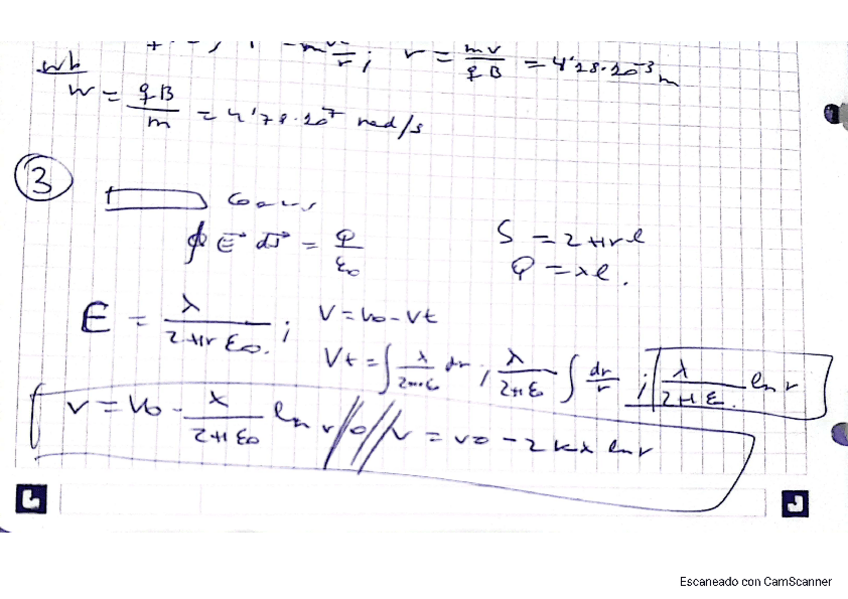 r = mv/qB = 4'28·10^-3 m
w = qB/m = 4'78·10^7 rad/s
3
Gauss
∮ E⃗ dS⃗ = Q/ε0
S = 2πrl
Q = λl.
E = λ/2πrε0. ; V = V0 - Vt
Vt = ∫ λ/2πrε dr ; λ/2πε0 ∫ dr/r ; λ/2πε. ln r
V = V0 - λ/2πε0 ln r // 0 // V = V0 - 2kλ ln r
Escaneado con CamScanner